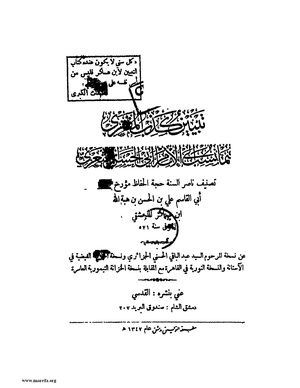 وكل سني لا يكون عنده كتاب
التبيين لابن عساكر فليس من
نفسه على
الكبرى
تبيين كذب المفتري
فيما نسب إلى الإمام أبي الحسن الأشعري
تصنيف ناصر السنة حجة الحفاظ مؤرخ
أبي القاسم علي بن الحسن بن هبة الله
ابن عساكر الدمشقي
سنة ٥٧١
عن نسخة المرحوم السيد عبد الباقي الحسني الجزائري ونسخة الفيضية في
الآستانة والنسخة النورية في القاهرة مع المقابلة بنسخة الخزانة التيمورية العامرة
عني بنشره : القدسي
دمشق الشام : صندوق البريد ٢٠٧
مطبعة التوفيق بدمشق عام ١٣٤٧ هـ